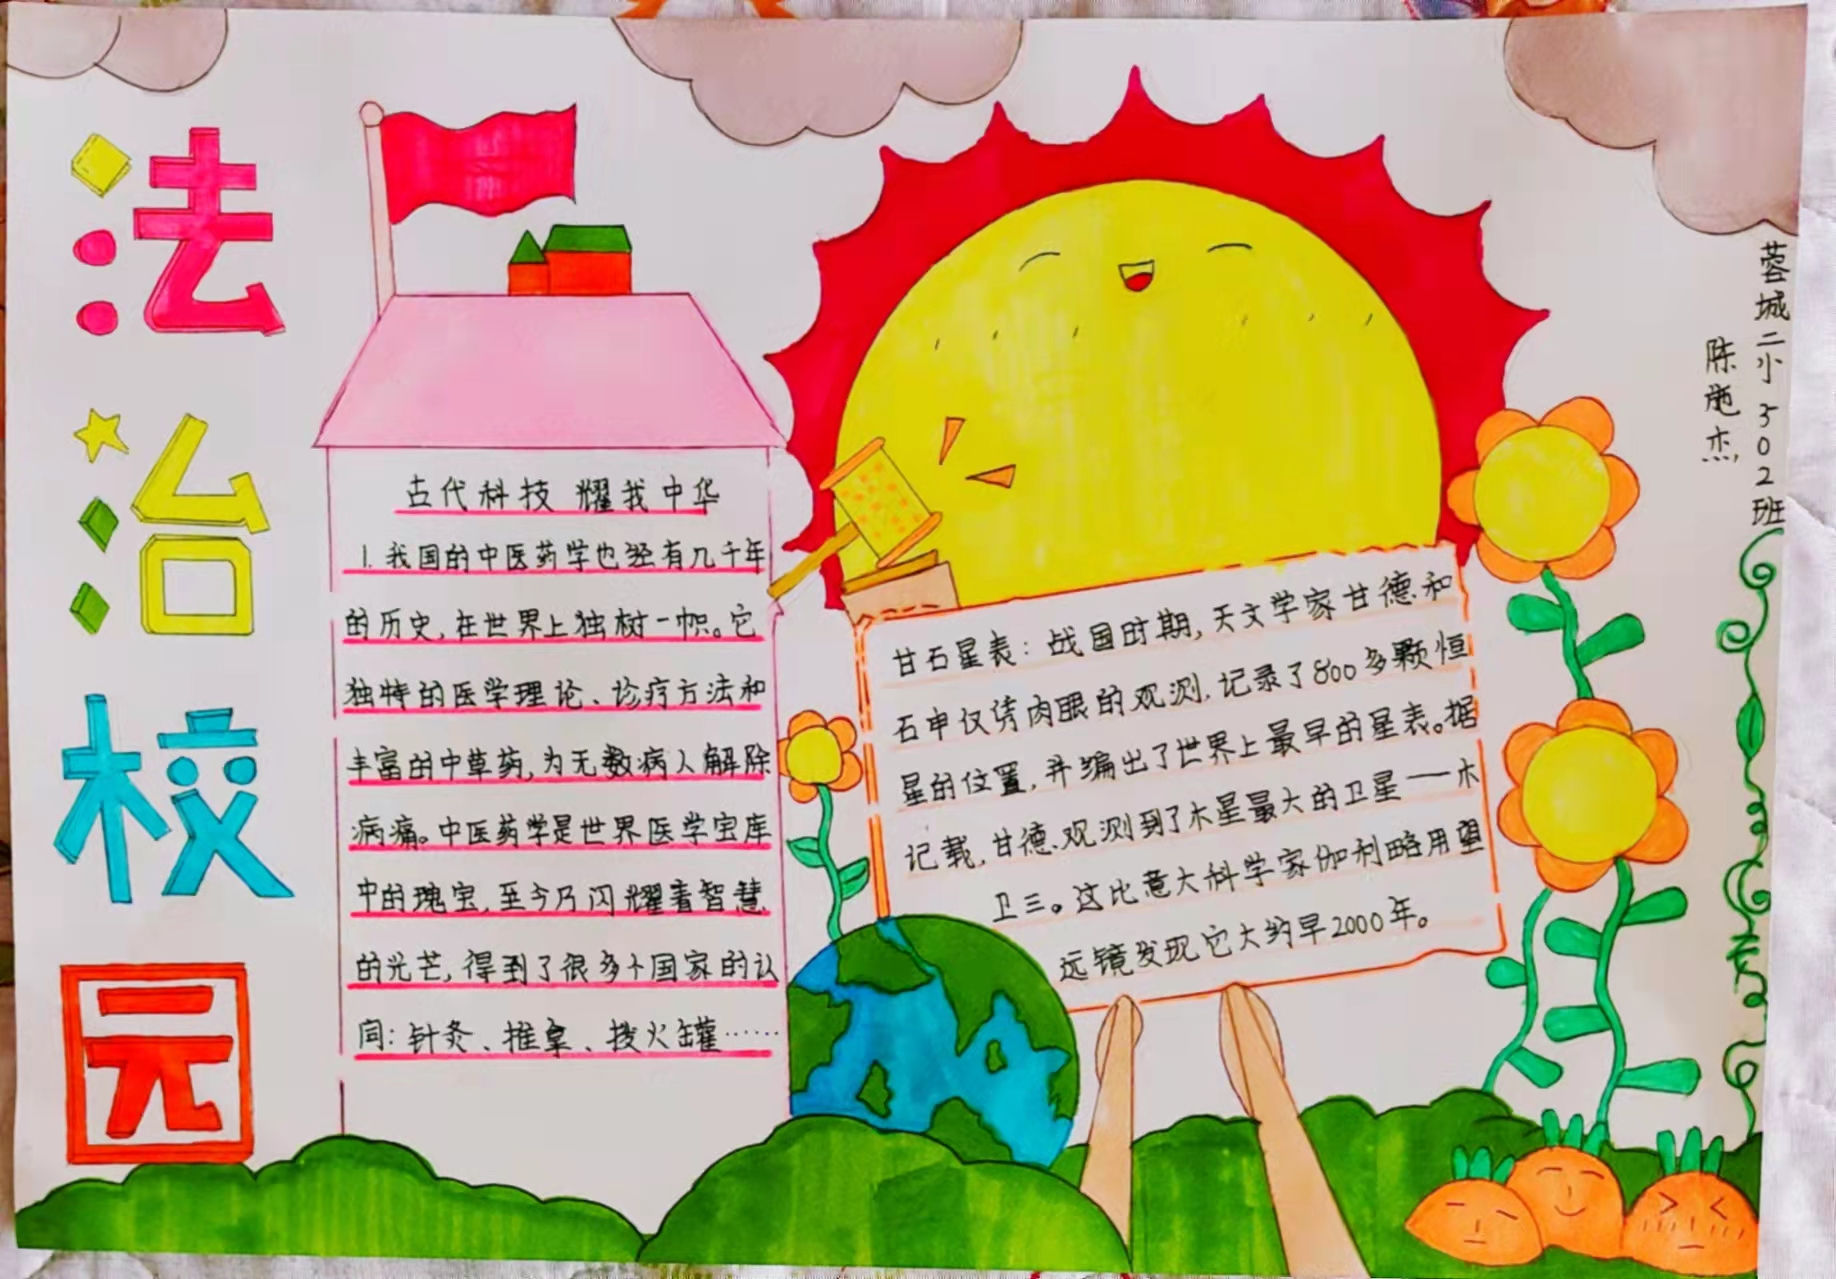 法治校园
古代科技 耀我中华
1.我国的中医药学也经有几千年
的历史,在世界上独树一帜。它
独特的医学理论、诊疗方法和
丰富的中草药,为无数病人解除
病痛。中医药学是世界医学宝库
中的瑰宝,至今乃闪耀着智慧
的光芒,得到了很多个国家的认
同:针灸、推拿、拨火罐……
甘石星表:战国时期,天文学家甘德和
石申仅凭肉眼的观测,记录了800多颗恒
星的位置,并编出了世界上最早的星表。据
记载,甘德观测到了木星最大的卫星——木
卫三。这比意大科学家伽利略用望
远镜发现它大约早2000年。
蓉城二小 502班
陈 杰